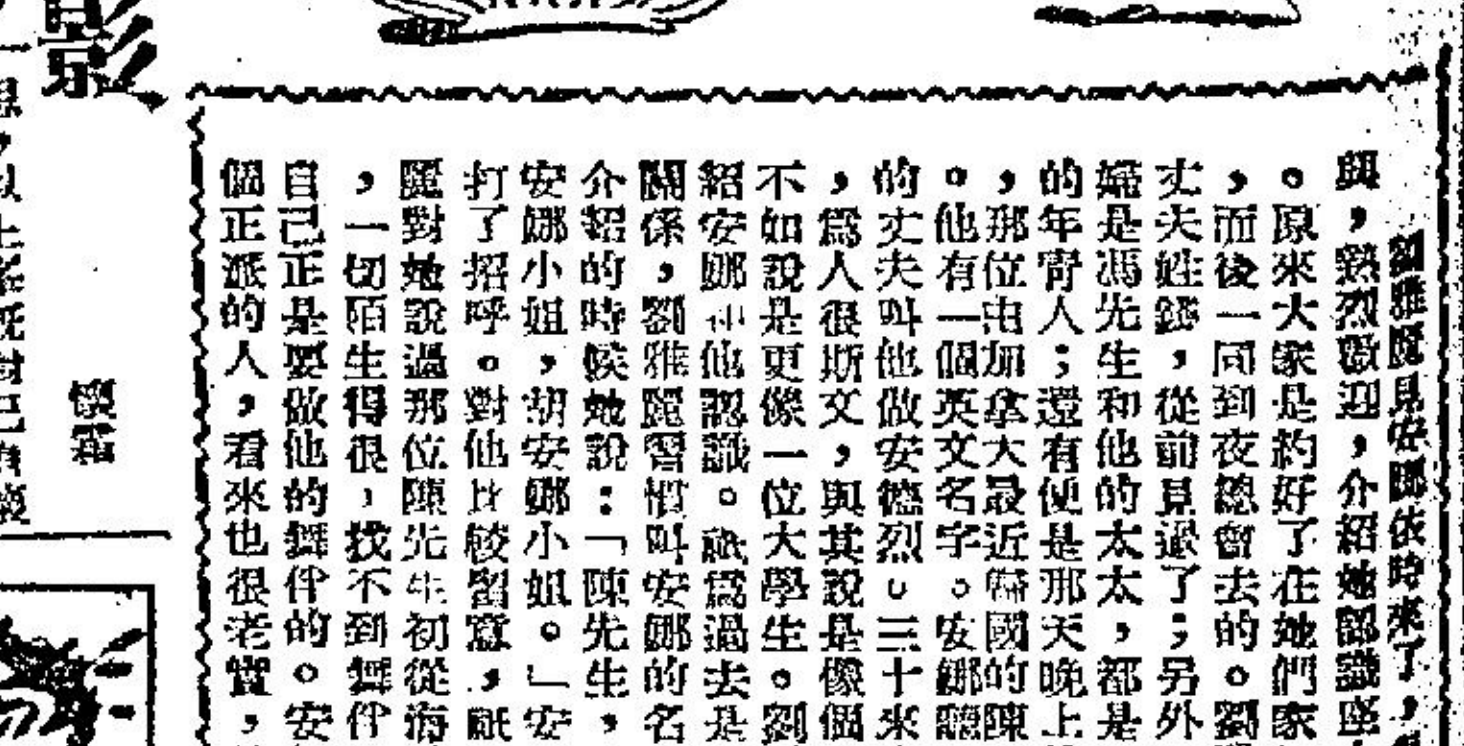 劉雅麗見安娜依時來了，
與，熱烈歡迎，介紹她認識座
。原來大家是約好了在她們家
，而後一同到夜總會去的。劉
丈夫姓，從前見過了；另外
婦是馮先生和他的太太，都是
的年青人；還有便是那天晚上
，那位由加拿大最近歸國的陳
。他有一個英文名字。安娜聽
的丈夫叫他做安德烈。三十來
，爲人很斯文，與其說是像個
不如說是更像一位大學生。劉
紹安娜和他認識。祇爲過去是
關係，劉雅麗習慣叫安娜的名
介紹的時候她說：「陳先生，
安娜小姐，胡安娜小姐。」安
打了招呼。對他比較留意，祇
麗對她說過那位陳先生初從海
，一切陌生得很，找不到舞伴
自己正是要做他的舞伴的。安
個正派的人，看來也很老實，
影
懷霜